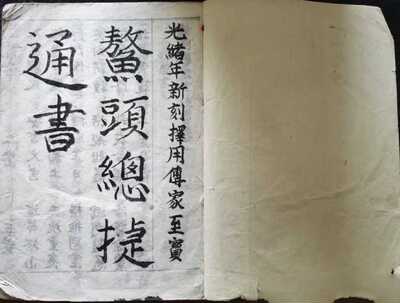 光緒年新刻擇用傳家至寶
鰲頭總捷
通書